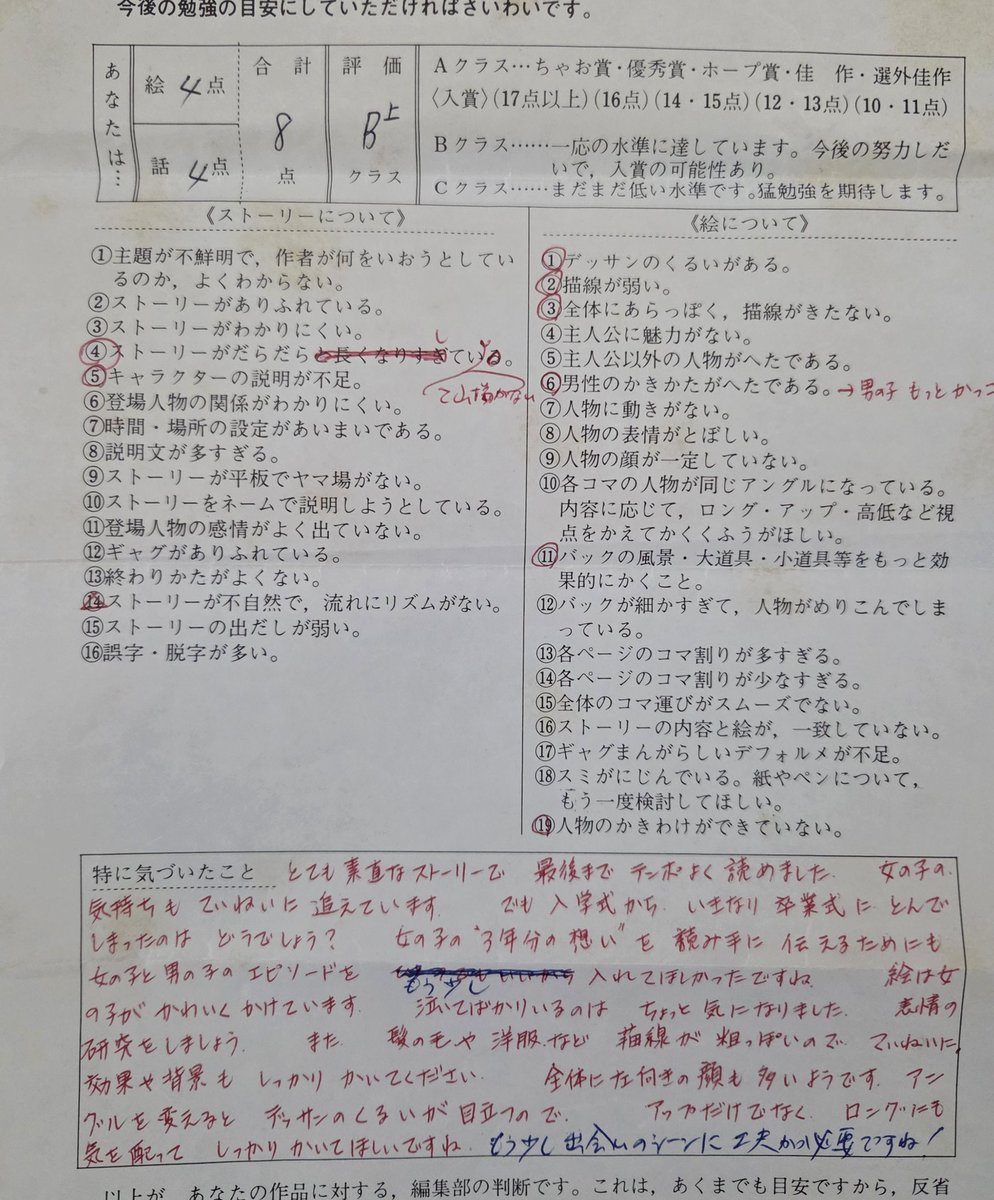 今後の勉強の目安にしていただければさいわいです。
あなたは…
絵 4点
話 4点
合計
8
点
評価
B上
クラス
Aクラス…ちゃお賞・優秀賞・ホープ賞・佳 作・選外佳作
〈入賞〉(17点以上)(16点)(14・15点)(12・13点)(10・11点)
Bクラス……一応の水準に達しています。今後の努力しだ
いで，入賞の可能性あり。
Cクラス……まだまだ低い水準です。猛勉強を期待します。
《ストーリーについて》
①主題が不鮮明で，作者が何をいおうとしてい
るのか，よくわからない。
②ストーリーがありふれている。
③ストーリーがわかりにくい。
④ストーリーがだらだらと長くなりすぎている。
し
て山場がない
⑤キャラクターの説明が不足。
⑥登場人物の関係がわかりにくい。
⑦時間・場所の設定があいまいである。
⑧説明文が多すぎる。
⑨ストーリーが平板でヤマ場がない。
⑩ストーリーをネームで説明しようとしている。
⑪登場人物の感情がよく出ていない。
⑫ギャグがありふれている。
⑬終わりかたがよくない。
⑭ストーリーが不自然で，流れにリズムがない。
⑮ストーリーの出だしが弱い。
⑯誤字・脱字が多い。
《絵について》
①デッサンのくるいがある。
②描線が弱い。
③全体にあらっぽく，描線がきたない。
④主人公に魅力がない。
⑤主人公以外の人物がへたである。
⑥男性のかきかたがへたである。→男の子 もっとかっこ
⑦人物に動きがない。
⑧人物の表情がとぼしい。
⑨人物の顔が一定していない。
⑩各コマの人物が同じアングルになっている。
内容に応じて，ロング・アップ・高低など視
点をかえてかくくふうがほしい。
⑪バックの風景・大道具・小道具等をもっと効
果的にかくこと。
⑫バックが細かすぎて，人物がめりこんでしま
っている。
⑬各ページのコマ割りが多すぎる。
⑭各ページのコマ割りが少なすぎる。
⑮全体のコマ運びがスムーズでない。
⑯ストーリーの内容と絵が，一致していない。
⑰ギャグまんがらしいデフォルメが不足。
⑱スミがにじんでいる。紙やペンについて，
もう一度検討してほしい。
⑲人物のかきわけができていない。
特に気づいたこと とても素直なストーリーで 最後まで テンポよく読めました. 女の子の
気持ちも ていねいに 追えています. でも 入学式から いきなり 卒業式に とんで
しまったのは どうでしょう？ 女の子の"3年分の想い"を 読み手に 伝えるためにも
女の子と男の子の エピソードを もう少し 入れてほしかったですね. 絵は女
の子が かわいく かけています. 泣いてばかりいるのは ちょっと 気になりました. 表情の
研究をしましょう. また 髪の毛や 洋服など 描線が 粗っぽいので ていねいに.
効果や背景も しっかり かいてください. 全体に左向きの顔も 多いようです. アン
グルを変えると デッサンのくるいが目立つので. アップだけでなく. ロングにも
気を配って しっかり かいてほしいですね. もう少し 出会いのシーンに 工夫が必要ですね！
以上が，あなたの作品に対する，編集部の判断です。これは，あくまでも目安ですから，反省